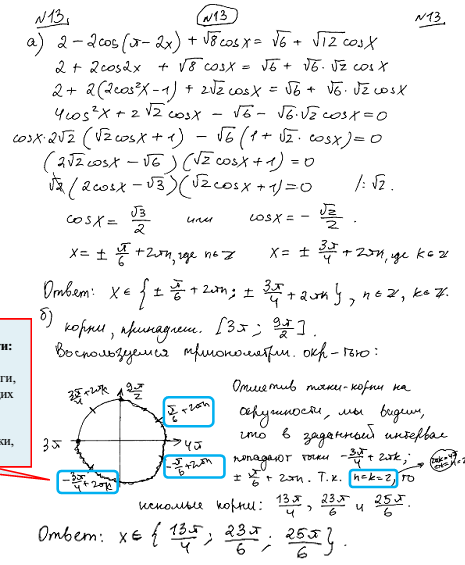 №13 №13 №13
а) 2 - 2cos(π - 2x) + √8 cosx = √6 + √12 cosx
2 + 2cos2x + √8 cosx = √6 + √6·√2 cosx
2 + 2(2cos²x-1) + 2√2 cosx = √6 + √6·√2 cosx
4cos²x + 2√2 cosx - √6 - √6·√2 cosx = 0
cosx·2√2(√2cosx + 1) - √6(1 + √2·cosx) = 0
(2√2cosx - √6)(√2cosx + 1) = 0
√2(2cosx - √3)(√2cosx + 1) = 0 /:√2.
cosx = √3/2 или cosx = -√2/2.
x = ± π/6 + 2πn, где n∈Z x = ± 3π/4 + 2πk, где k∈Z
Ответ: x∈{± π/6 + 2πn; ± 3π/4 + 2πk}, n∈Z, k∈Z.
б) корни, принадлеж. [3π; 9π/2].
Воспользуемся тригонометрич. окр-тью:
ти:
ги,
щих
ки,
3π/4 + 2πk
9π/2
π/6 + 2πn
3π
4π
-π/6 + 2πn
-3π/4 + 2πk
Отметив точки-корни на
окружности, мы видим,
что в заданный интервал
попадают точки -3π/4 + 2πk;
± π/6 + 2πn. Т.к. n=k=2, то
искомые корни: 13π/4, 23π/6 и 25π/6.
Ответ: x∈{13π/4; 23π/6; 25π/6}.